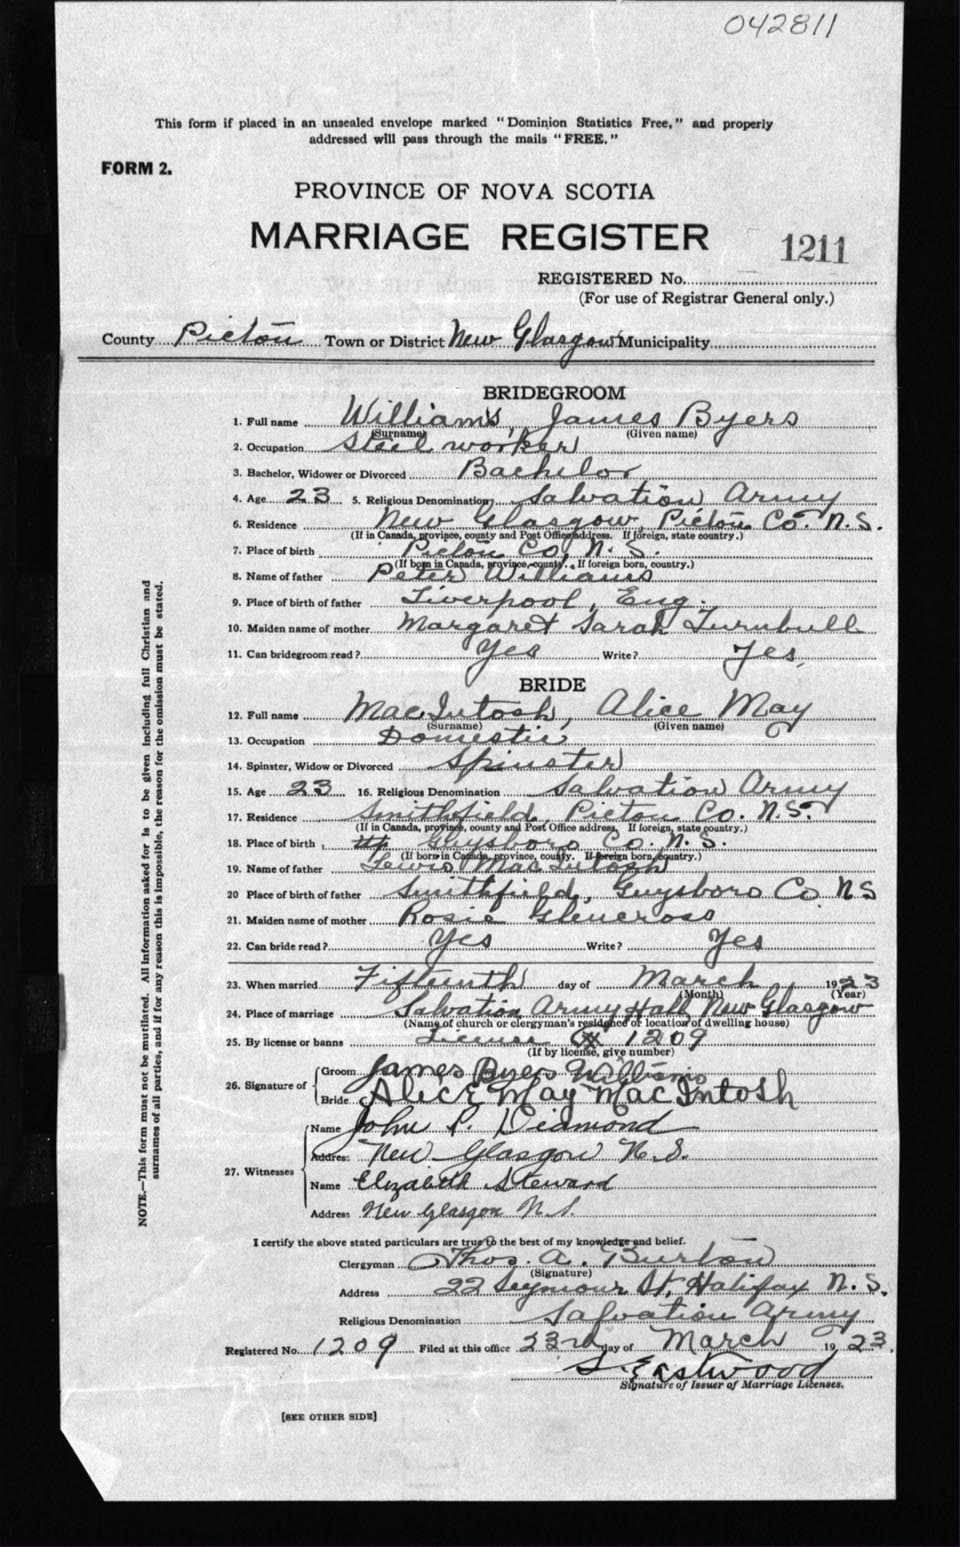 042811
This form if placed in an unsealed envelope marked "Dominion Statistics Free," and properly
addressed will pass through the mails "FREE."
FORM 2.
PROVINCE OF NOVA SCOTIA
MARRIAGE REGISTER
1211
REGISTERED No.
(For use of Registrar General only.)
County Pictou Town or District New Glasgow Municipality
BRIDEGROOM
1. Full name Williams, James Byers
(Surname) (Given name)
2. Occupation Steel worker
3. Bachelor, Widower or Divorced Bachelor
4. Age 23 5. Religious Denomination Salvation Army
6. Residence New Glasgow, Pictou Co. N.S.
(If in Canada, province, county and Post Office address. If foreign, state country.)
7. Place of birth Pictou Co. N. S.
(If born in Canada, province, county. If foreign born, country.)
8. Name of father Peter Williams
9. Place of birth of father Liverpool, Eng.
10. Maiden name of mother Margaret Sarah Turnbull
11. Can bridegroom read? Yes Write? Yes
BRIDE
12. Full name MacIntosh, Alice May
(Surname) (Given name)
13. Occupation Domestic
14. Spinster, Widow or Divorced Spinster
15. Age 23 16. Religious Denomination Salvation Army
17. Residence Smithfield, Pictou Co. N.S.
(If in Canada, province, county and Post Office address. If foreign, state country.)
18. Place of birth Guysboro Co. N.S.
(If born in Canada, province, county. If foreign born, country.)
19. Name of father Lewis MacIntosh
20 Place of birth of father Smithfield, Guysboro Co NS
21. Maiden name of mother Rosie Glencross
22. Can bride read? Yes Write? Yes
23. When married Fifteenth day of March 1923
(Month) (Year)
24. Place of marriage Salvation Army Hall, New Glasgow
(Name of church or clergyman's residence or location of dwelling house)
25. By license or banns License 1209
(If by license, give number)
26. Signature of
Groom James Byers Williams
Bride Alice May MacIntosh
27. Witnesses
Name John P. Diamond
Address New Glasgow N.S.
Name Elizabeth Steward
Address New Glasgow N.S.
I certify the above stated particulars are true to the best of my knowledge and belief.
Clergyman Thos. A. Burton
(Signature)
Address 22 Seymour St, Halifax N.S.
Religious Denomination Salvation Army
Registered No. 1209 Filed at this office 23rd day of March 1923.
S. Eastwood
Signature of Issuer of Marriage Licenses.
[SEE OTHER SIDE]
NOTE.—This form must not be mutilated. All information asked for is to be given including full Christian and
surnames of all parties, and if for any reason this is impossible, the reason for the omission must be stated.